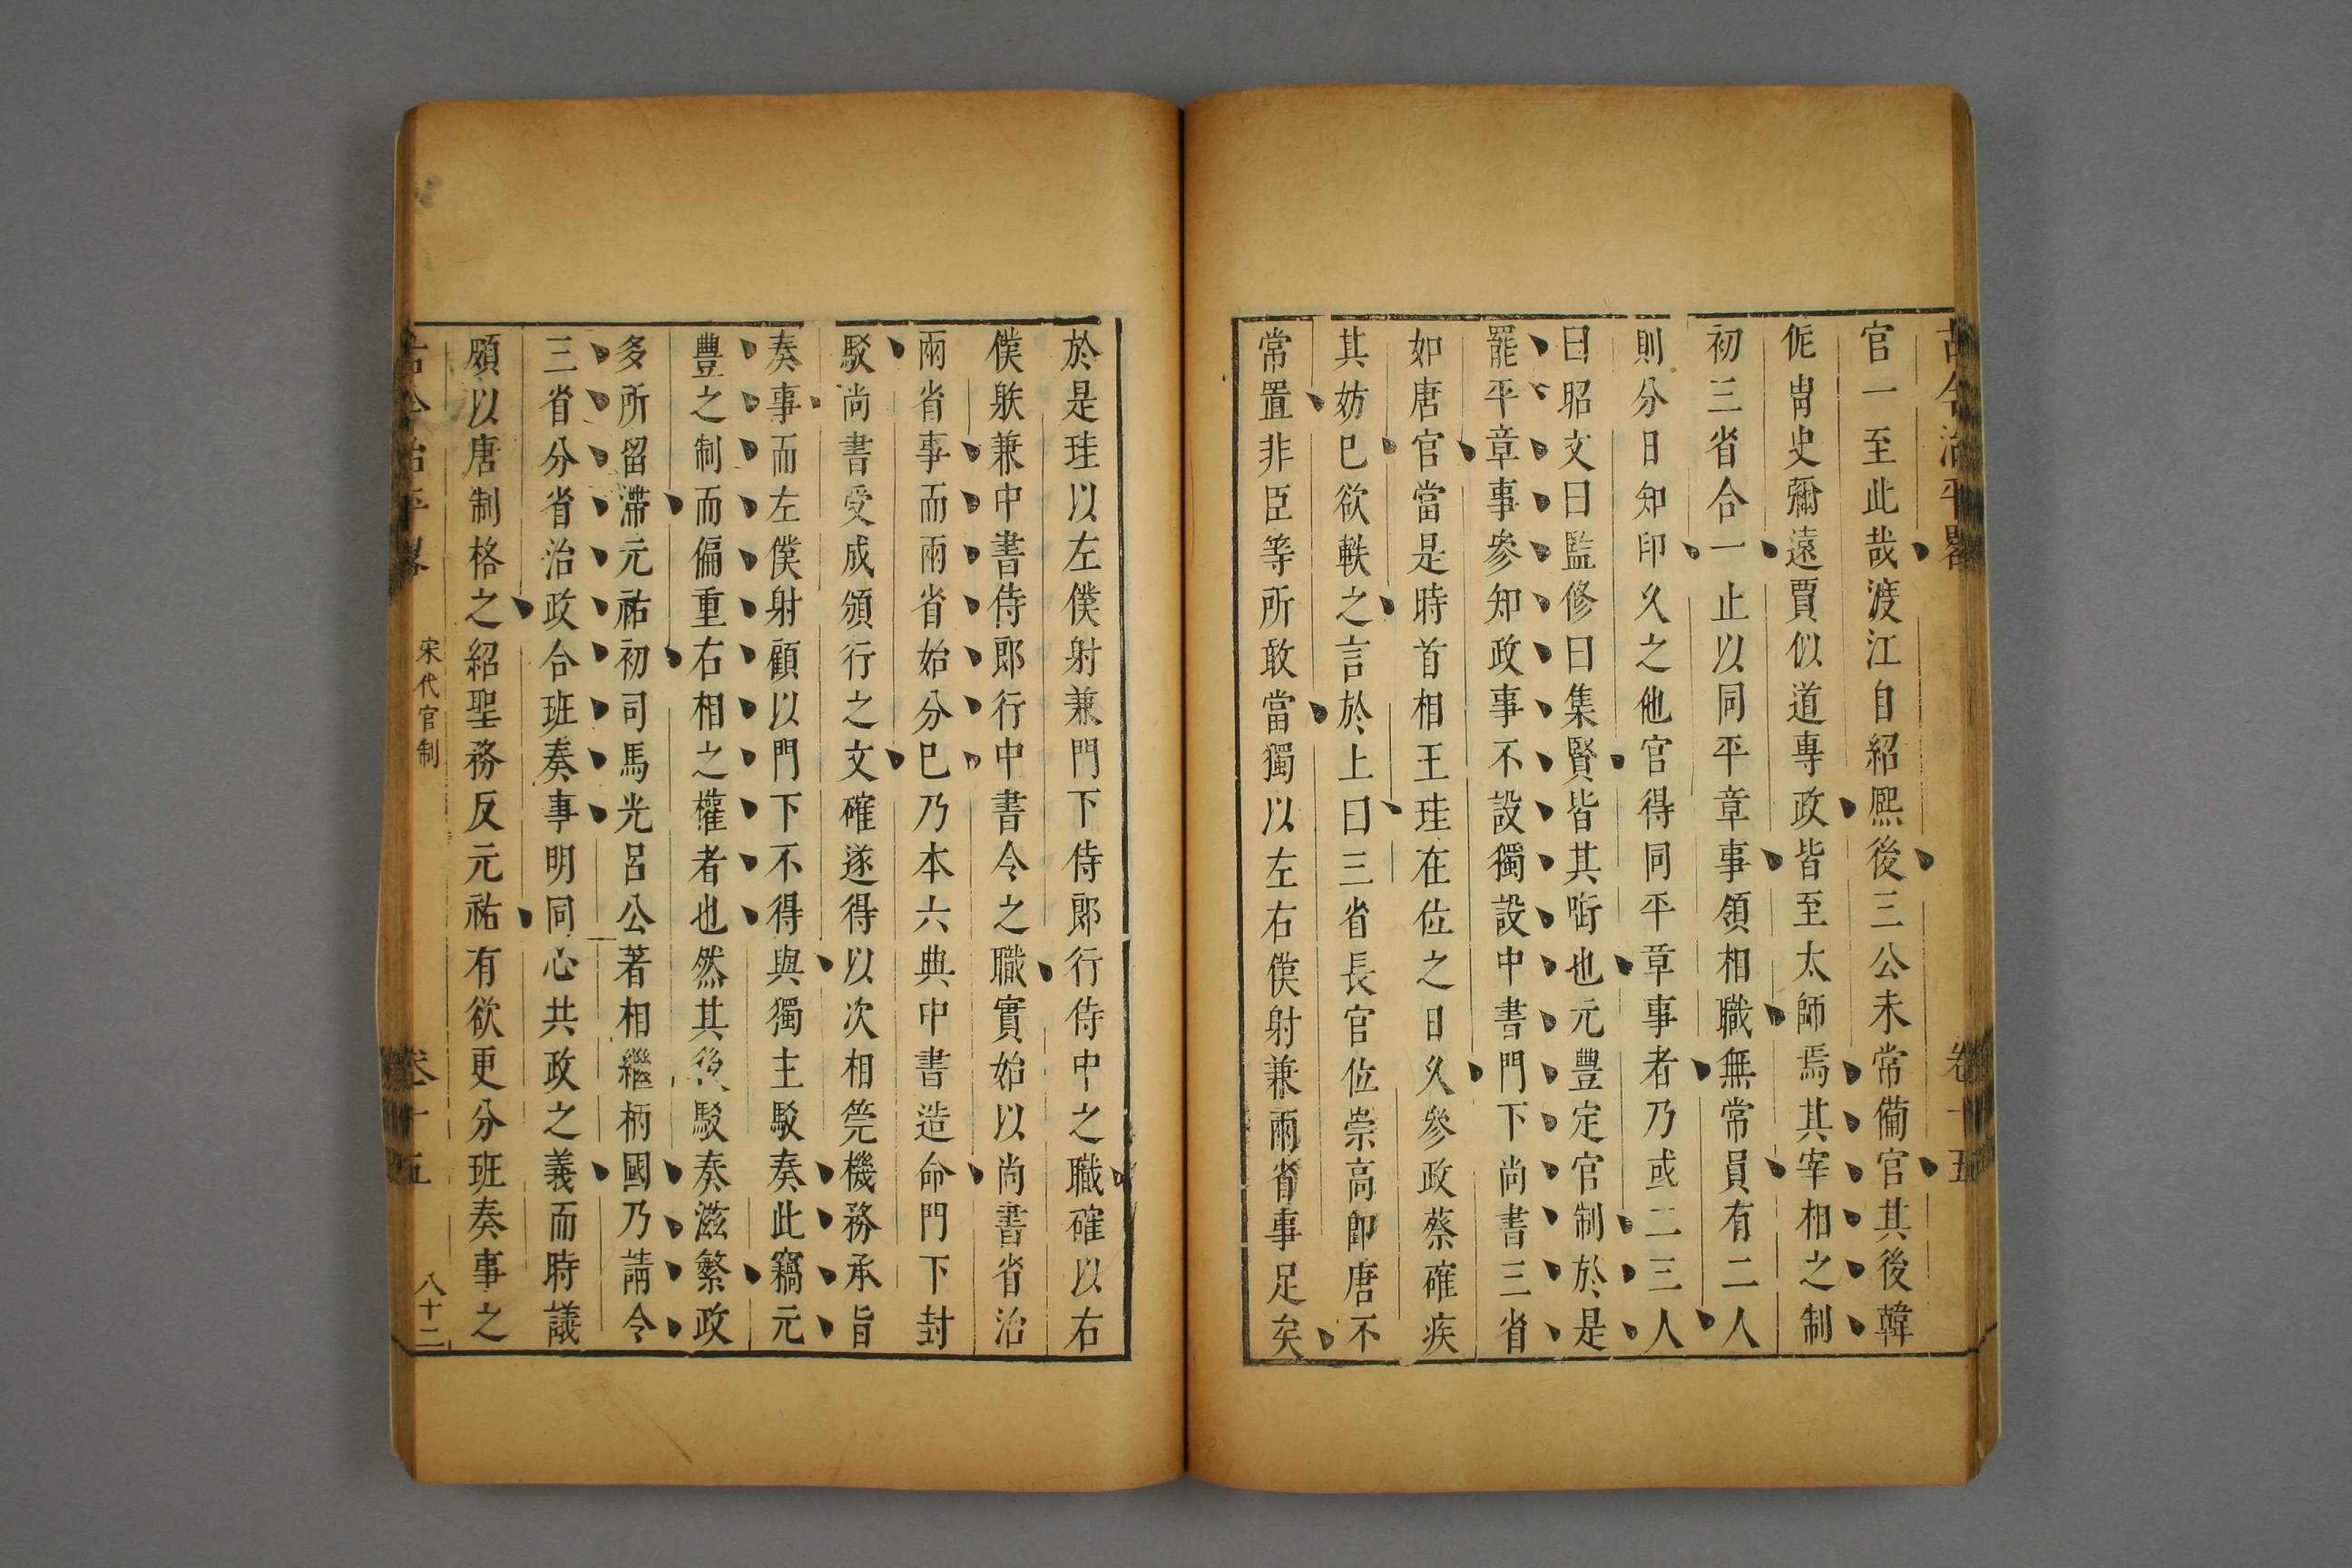 古今治平畧 卷十五
官一至此哉渡江自紹熈後三公未常備官其後韓
侂胄史彌遠賈似道專政皆至太師焉其宰相之制
初三省合一止以同平章事領相職無常員有二人
則分日知印久之他官得同平章事者乃或二三人
曰昭文曰監修曰集賢皆其啣也元豐定官制於是
罷平章事參知政事不設獨設中書門下尚書三省
如唐官當是時首相王珪在位之日久參政蔡確疾
其妨已欲軼之言於上曰三省長官位崇高卽唐不
常置非臣等所敢當獨以左右僕射兼兩省事足矣
於是珪以左僕射兼門下侍郎行侍中之職確以右
僕躲兼中書侍郎行中書令之職實始以尚書省治
兩省事而兩省始分已乃本六典中書造命門下封
駁尚書受成頒行之文確遂得以次相筦機務承旨
奏事而左僕射顧以門下不得與獨主駁奏此竊元
豐之制而偏重右相之權者也然其後駁奏滋繁政
多所留滯元祐初司馬光呂公著相繼柄國乃請令
三省分省治政合班奏事明同心共政之義而時議
頋以唐制格之紹聖務反元祐有欲更分班奏事之
古今治平畧 宋代官制 卷十五 八十二